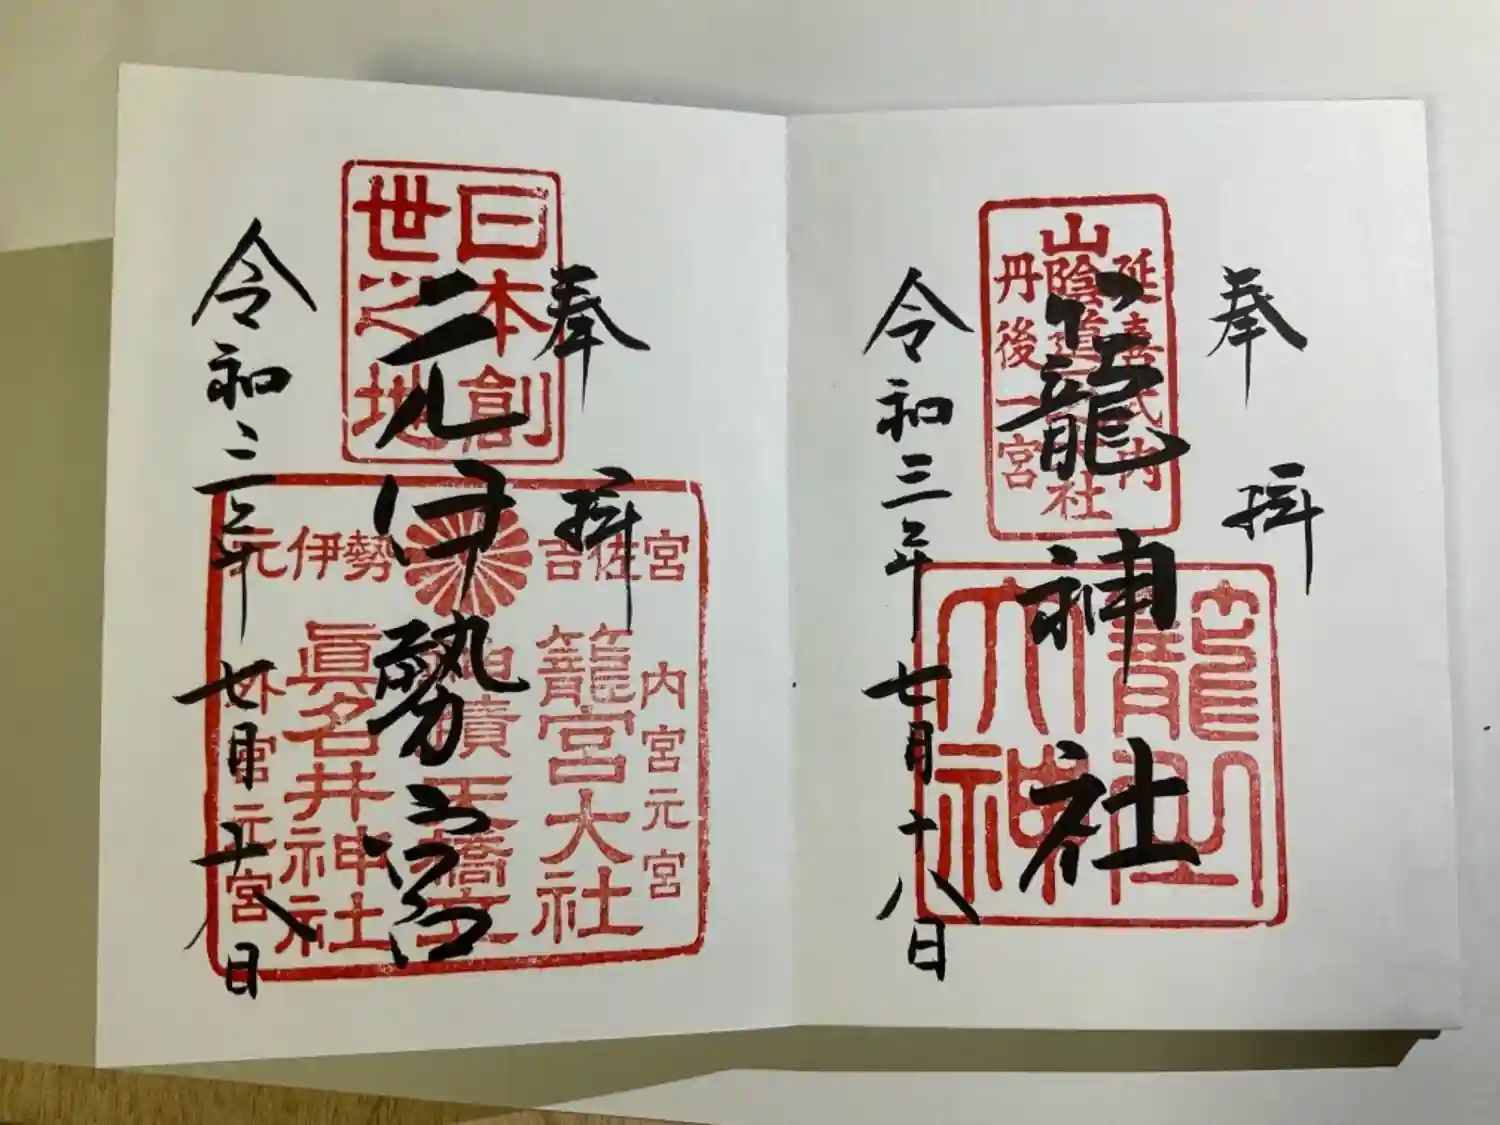 奉拝
延喜式内
山陰道
社
丹後一宮
籠神社
令和三年七月十八日
奉拝
日本創
世之地
元伊勢
吉佐宮
内宮元宮
籠宮大社
天橋立
眞名井神社
外宮元宮
元伊勢宮
令和三年七月十八日